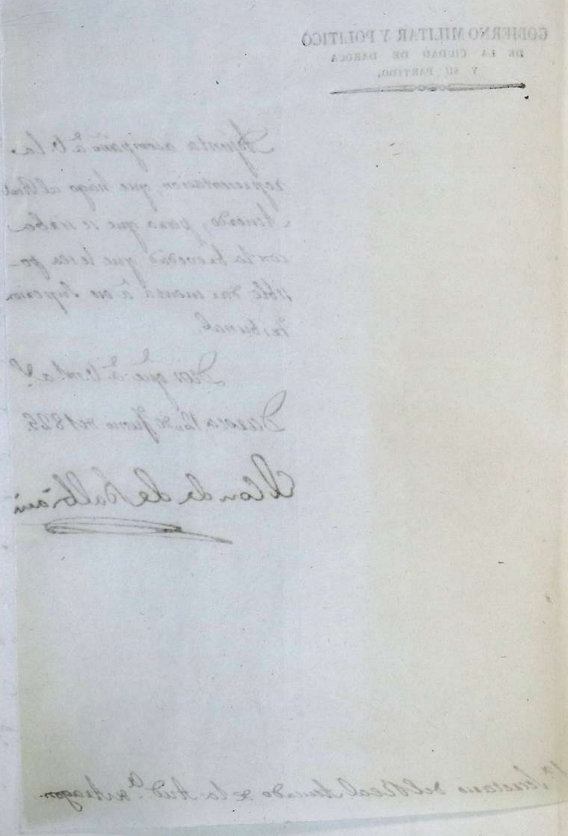 GOBIERNO MILITAR Y POLITICO
DE LA CIUDAD DE DAROCA
Y SU PARTIDO.
Adjunta acompaño à V. la
representacion que hago al Real
Acuerdo, para que se sirba
con la brevedad que le sea po-
sible dar cuenta à ese Superior
Tribunal.
Dios gue. à V. m. a.
Daroca 12 de Junio de 1825.
El Conde de Balbiani
Sr. Secretario del Real Acuerdo de la Aud.a de Aragon.